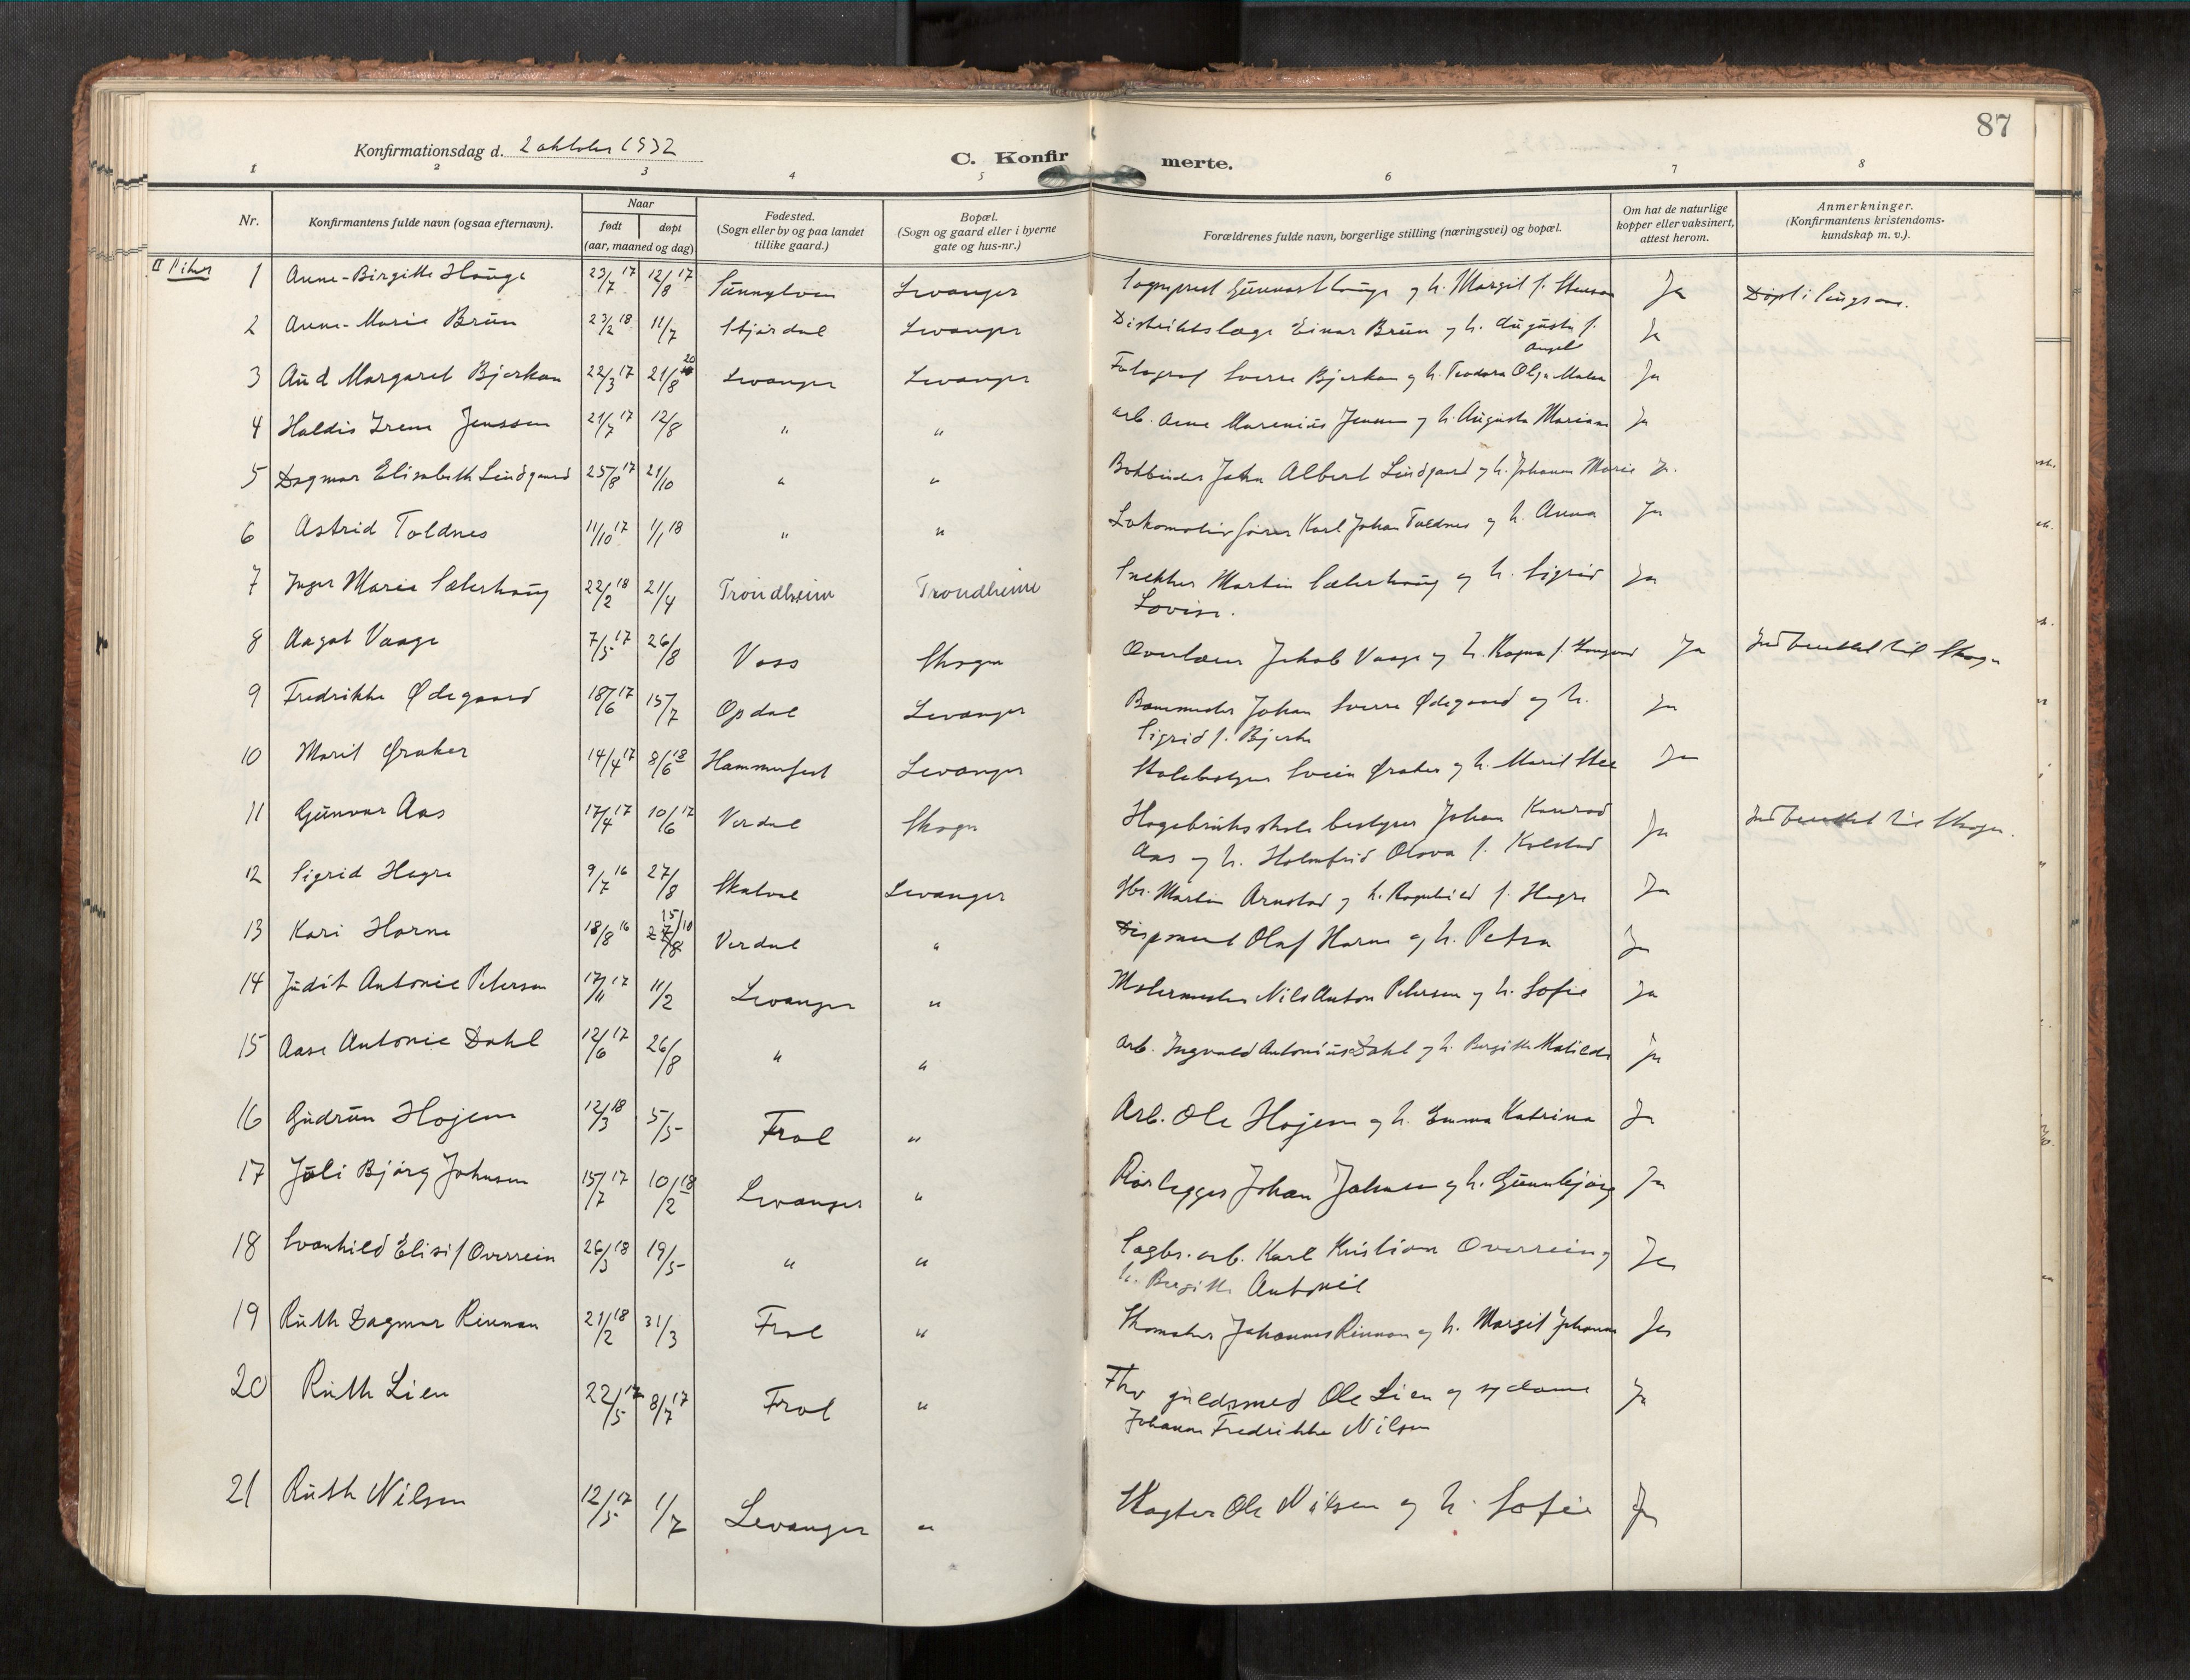 87
Konfirmationsdag d. 2 oktober 1932
C. Konfirmerte.
1 2 3 4 5 6 7 8
Nr.
Konfirmantens fulde navn (ogsaa efternavn).
Naar
født døpt
(aar, maaned og dag)
Fødested.
(Sogn eller by og paa landet
tillike gaard.)
Bopæl.
(Sogn og gaard eller i byerne
gate og hus-nr.)
Forældrenes fulde navn, borgerlige stilling (næringsvei) og bopæl.
Om hat de naturlige
kopper eller vaksinert,
attest herom.
Anmerkninger.
(Konfirmantens kristendoms-
kundskap m. v.).
II Piker
1 Anne-Birgitte Hauge 23/7 17 12/8 17 Sunnylven Levanger Sogneprest Gunnar Hauge og h. Margit f. Stenson Ja Døpt i
2 Anne-Marie Brun 23/2 18 11/7 Stjørdal Levanger Distriktslæge Einar Brun og h. Augusta f. Ja
Angell
3 Aud Margaret Bjerkan 22/3 17 21/8 20 Levanger Levanger Fotograf Sverre Bjerkan og h. Teodora Olga Ja
4 Haldis Irene Jenssen 21/7 17 12/8 " " arb. Arne Marenius Jenssen og h. Augusta Mariane Ja
5 Dagmar Elisabeth Lindgaard 25/8 17 21/10 " " Bokbinder John Albert Lindgaard og h. Johanna Marie Ja
6 Astrid Toldnes 11/10 17 1/1 18 " " Lokomotivfører Karl Johan Toldnes og h. Anna Ja
7 Inger Marie Sæterhaug 22/2 18 21/4 Trondheim Trondheim Snekker Martin Sæterhaug og h. Sigrid Ja
Lovise.
8 Aagot Vaage 7/5 17 26/8 Voss Skogn Overlærer Jakob Vaage og h. Ragna f. Ja til Skogn
9 Fredrikke Ødegaard 18/6 17 15/7 Opdal Levanger Banemester Johan Sverre Ødegaard og h. Ja
Sigrid f. Bjerke
10 Marit Øraker 14/4 17 8/6 18 Hammerfest Levanger Skolebestyrer Svein Øraker og h. Marit Ja
11 Gunvor Aas 17/4 17 10/6 17 Verdal Skogn Hagebruksskolebestyrer Johan Konrad Ja til Skogn.
Aas og h. Holmfrid Olava f. Kolstad
12 Sigrid Hegre 9/7 16 27/8 Skatval Levanger Gbr. Martin Arnstad og h. Ragnhild f. Hegre Ja
13 Kari Horne 18/8 16 15/10 Verdal " Disponent Olaf Horne og h. Petra Ja
14 Judit Antonie Petersen 17/11 17 11/2 Levanger " Malermester Nils Anton Petersen og h. Sofie Ja
15 Aase Antonie Dahl 12/6 17 26/8 " " arb. Ingvald Antonius Dahl og h. Bergitte Matilde Ja
16 Gudrun Hojem 12/3 18 5/5 Frol " Arb. Ole Hojem og h. Emma Katrina Ja
17 Juli Bjørg Johnsen 15/7 17 10/2 18 Levanger " Rørlegger Johan Johnsen og h. Gunnbjørg Ja
18 Svanhild Elisif Overrein 26/3 18 19/5 " " Sagbr. arb. Karl Kristian Overrein og Ja
h. Bergitte Antonie
19 Ruth Dagmar Rinnan 21/2 18 31/3 Frol " Skomaker Johannes Rinnan og h. Margit Johanna Ja
20 Ruth Lien 22/5 17 8/7 17 Frol " Fhv guldsmed Ole Lien og sydame Ja
Johanna Fredrikke Nilsen
21 Ruth Nilsen 12/5 17 1/7 Levanger " Slagter Ole Nilsen og h. Sofie Ja